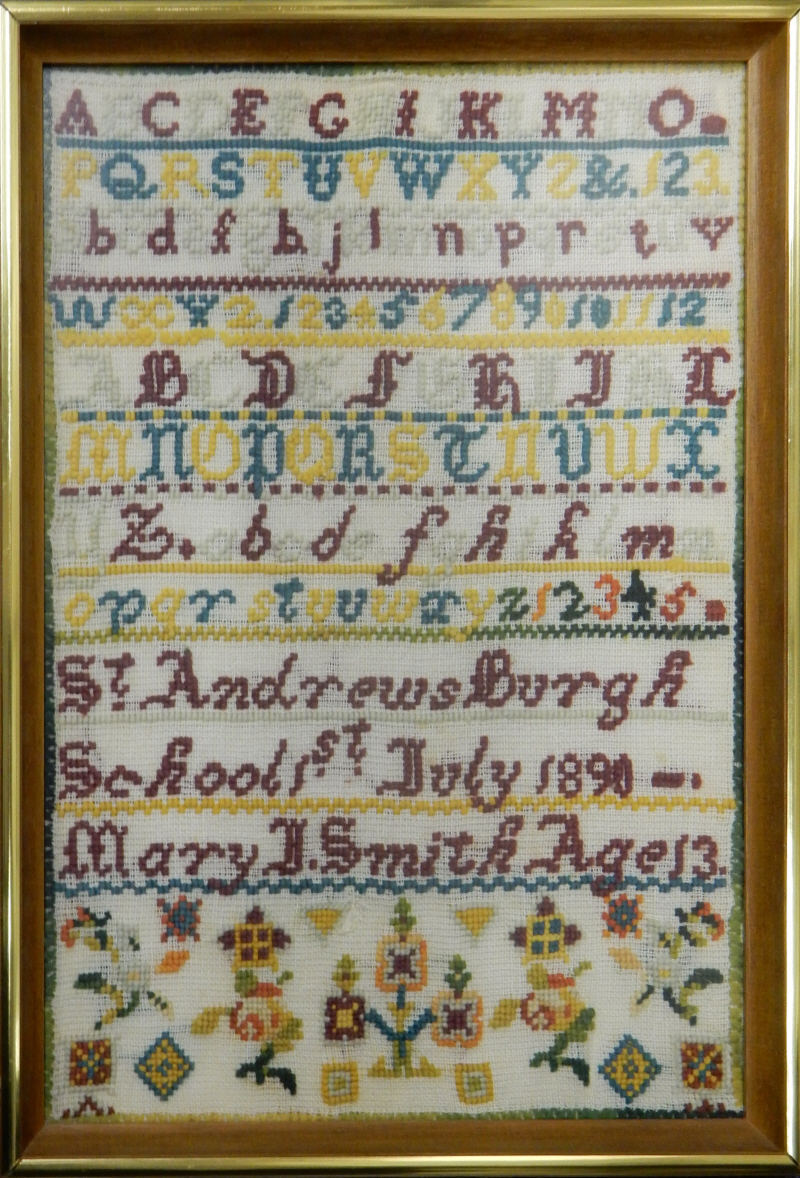 A B C D E F G H I K L M N O.
P Q R S T U V W X Y Z &. 1 2 3.
a b c d e f g h i j k l m n o p q r s t u v
w x y z. 1 2 3 4 5 6 7 8 9 10 11 12
A B C D E F G H I J K L
M N O P Q R S T U V W X
Y Z. a b c d e f g h i k l m n
o p q r s t u v w x y z 1 2 3 4 5.
St Andrews Burgh
School 1st July 1890 -.
Mary J. Smith Age 13.